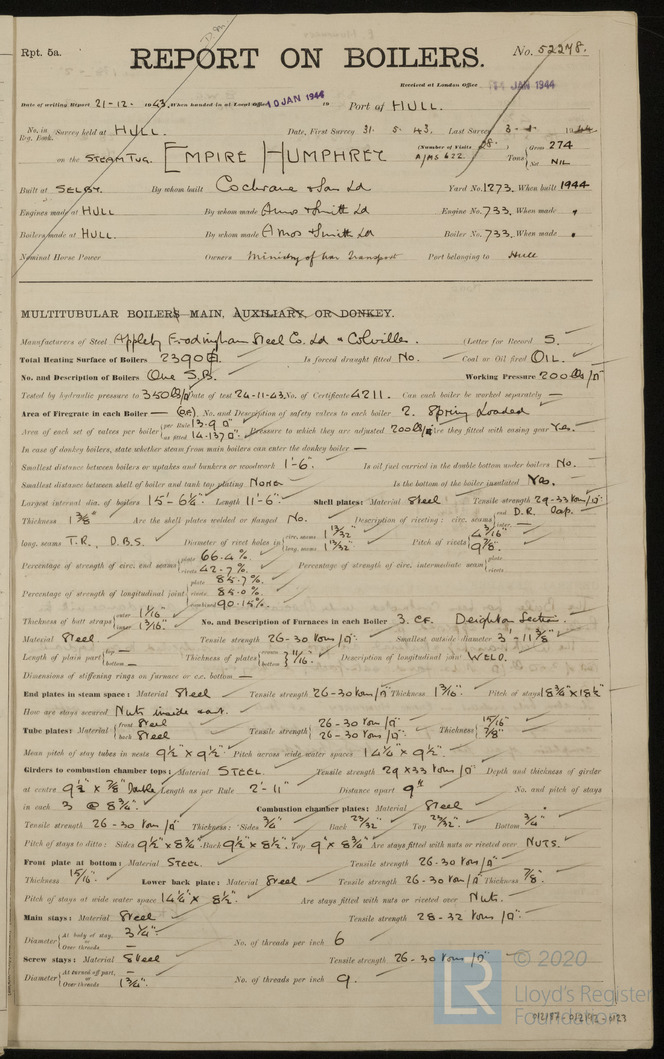 Rpt. 5a.
REPORT ON BOILERS.
No. 52278.
Received at London Office 14 JAN 1944
Date of writing Report 21-12-1943. When handed in at Local Office 10 JAN 1944 19 Port of HULL.
No. in Reg. Book. Survey held at HULL. Date, First Survey 31. 5. 43. Last Survey 3-1- 1944
on the STEAM TUG. EMPIRE HUMPHREY (Number of Visits 28.) A/MS 622. Tons Gross 274 Net NIL
Built at SELBY. By whom built Cochrane & Son Ld Yard No. 1273. When built 1944
Engines made at HULL By whom made Amos & Smith Ld Engine No. 733. When made "
Boilers made at HULL. By whom made Amos & Smith Ld Boiler No. 733. When made "
Nominal Horse Power Owners Ministry of War Transport Port belonging to Hull
MULTITUBULAR BOILERS MAIN, AUXILIARY, OR DONKEY.
Manufacturers of Steel Appleby Frodingham Steel Co. Ld & Colvilles. (Letter for Record S.
Total Heating Surface of Boilers 2390 Is forced draught fitted No. Coal or Oil fired OIL.
No. and Description of Boilers One S.B. Working Pressure 200 lb/□"
Tested by hydraulic pressure to 350 lb/□" Date of test 24-11-43. No. of Certificate 4211. Can each boiler be worked separately —
Area of Firegrate in each Boiler — (O.F.) No. and Description of safety valves to each boiler 2. Spring Loaded
Area of each set of valves per boiler per Rule 13.9 □" as fitted 14.137 □" Pressure to which they are adjusted 200 lb/□" Are they fitted with easing gear Yes.
In case of donkey boilers, state whether steam from main boilers can enter the donkey boiler —
Smallest distance between boilers or uptakes and bunkers or woodwork 1'-6". Is oil fuel carried in the double bottom under boilers No.
Smallest distance between shell of boiler and tank top plating None Is the bottom of the boiler insulated Yes.
Largest internal dia. of boilers 15'-6¼" Length 11'-6". Shell plates: Material Steel Tensile strength 29-33 tons/□"
Thickness 1⅜" Are the shell plates welded or flanged No. Description of riveting: circ. seams end D.R. lap. inter. —
long. seams T.R. D.B.S. Diameter of rivet holes in circ. seams 1 13/32" long. seams 1 13/32" Pitch of rivets 4 3/16" 9⅞"
Percentage of strength of circ. end seams plate 66.4% rivets 42.7% Percentage of strength of circ. intermediate seam plate rivets
Percentage of strength of longitudinal joint plate 85.7% rivets 85.0% combined 90.15%
Thickness of butt straps outer 1 1/16" inner 1 3/16" No. and Description of Furnaces in each Boiler 3. CF. Deighton Section.
Material Steel Tensile strength 26-30 tons/□" Smallest outside diameter 3'-11⅜"
Length of plain part top — bottom — Thickness of plates crown bottom 11/16" Description of longitudinal joint WELD.
Dimensions of stiffening rings on furnace or c.c. bottom —
End plates in steam space: Material Steel Tensile strength 26-30 tons/□" Thickness 1 3/16" Pitch of stays 18¾" x 18½"
How are stays secured Nuts inside & out.
Tube plates: Material front Steel back Steel Tensile strength 26-30 tons/□" 26-30 tons/□" Thickness 15/16" 7/8"
Mean pitch of stay tubes in nests 9½" x 9½" Pitch across wide water spaces 14¼" x 9½"
Girders to combustion chamber tops: Material STEEL. Tensile strength 29 x 33 tons/□" Depth and thickness of girder
at centre 9½" x ⅞" Double Length as per Rule 2'-11" Distance apart 9" No. and pitch of stays
in each 3 @ 8¾". Combustion chamber plates: Material Steel
Tensile strength 26-30 tons/□" Thickness: Sides ¾" Back 23/32" Top 23/32" Bottom ¾"
Pitch of stays to ditto: Sides 9½" x 8¾" Back 9½" x 8½" Top 9" x 8¾" Are stays fitted with nuts or riveted over NUTS.
Front plate at bottom: Material STEEL. Tensile strength 26-30 tons/□"
Thickness 15/16" Lower back plate: Material Steel Tensile strength 26-30 tons/□" Thickness ⅞"
Pitch of stays at wide water space 14¼" x 8½" Are stays fitted with nuts or riveted over Nuts.
Main stays: Material Steel Tensile strength 28-32 tons/□"
Diameter At body of stay, 3¼" or Over threads — No. of threads per inch 6
Screw stays: Material Steel Tensile strength 26-30 tons/□"
Diameter At turned off part, — or Over threads 1¾" No. of threads per inch 9.
© 2020
Lloyd's Register
Foundation
012187-012192-0123